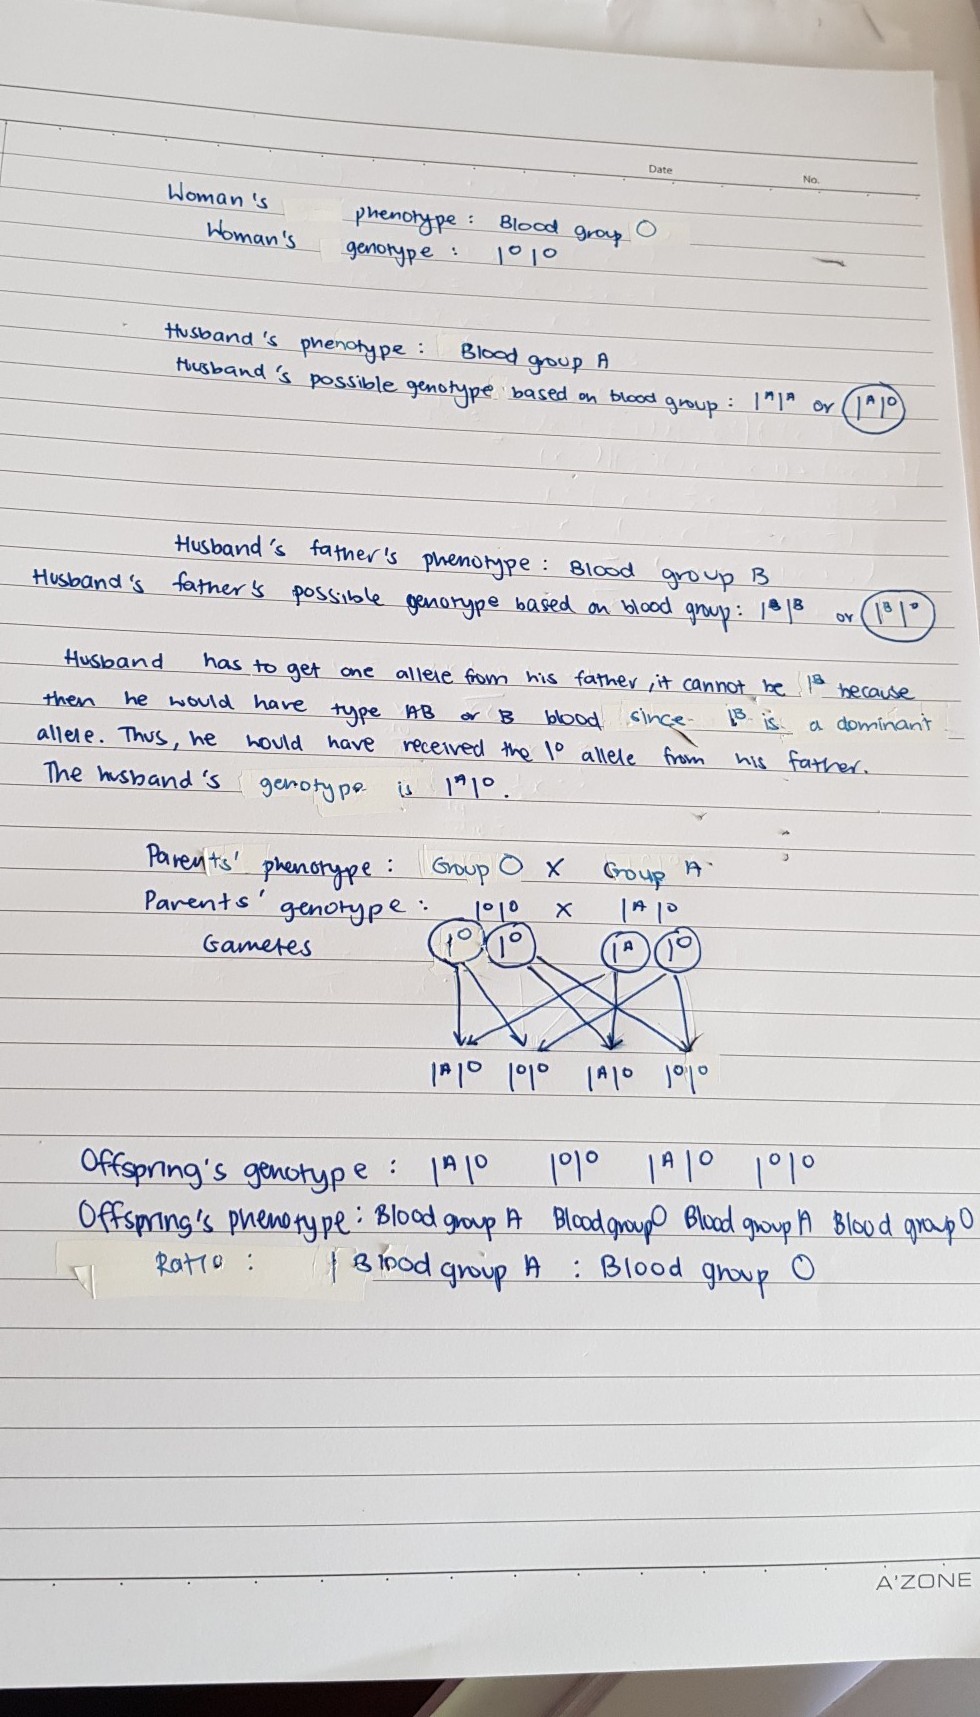 Date No.
Woman's phenotype : Blood group O
Woman's genotype : I° I°
Husband's phenotype : Blood group A
Husband's possible genotype based on blood group : IᴬIᴬ or IᴬI°
Husband's father's phenotype : Blood group B
Husband's father's possible genotype based on blood group : IᴮIᴮ or IᴮI°
Husband has to get one allele from his father, it cannot be Iᴮ because
then he would have type AB or B blood since Iᴮ is a dominant
allele. Thus, he would have received the I° allele from his father.
The husband's genotype is IᴬI°.
Parents' phenotype : Group O X Group A
Parents' genotype : I°I° x IᴬI°
Gametes I° I° Iᴬ I°
IᴬI° I°I° IᴬI° I°I°
Offspring's genotype : IᴬI° I°I° IᴬI° I°I°
Offspring's phenotype : Blood group A Blood group O Blood group A Blood group O
Ratio : 1 Blood group A : Blood group O
A'ZONE